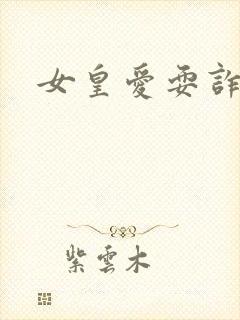 女皇愛耍詐
紫雲木